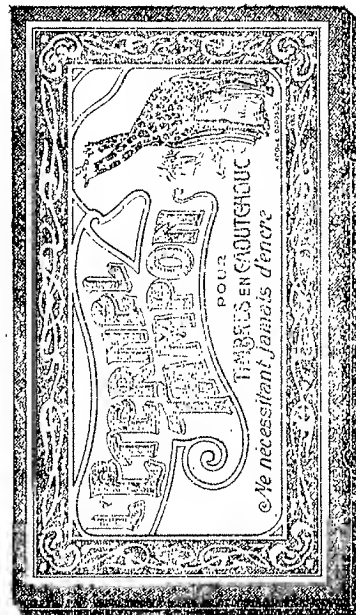 L'ÉTERNEL
TAMPON
POUR
TIMBRES EN CAOUTCHOUC
Ne nécessitant jamais d'encre